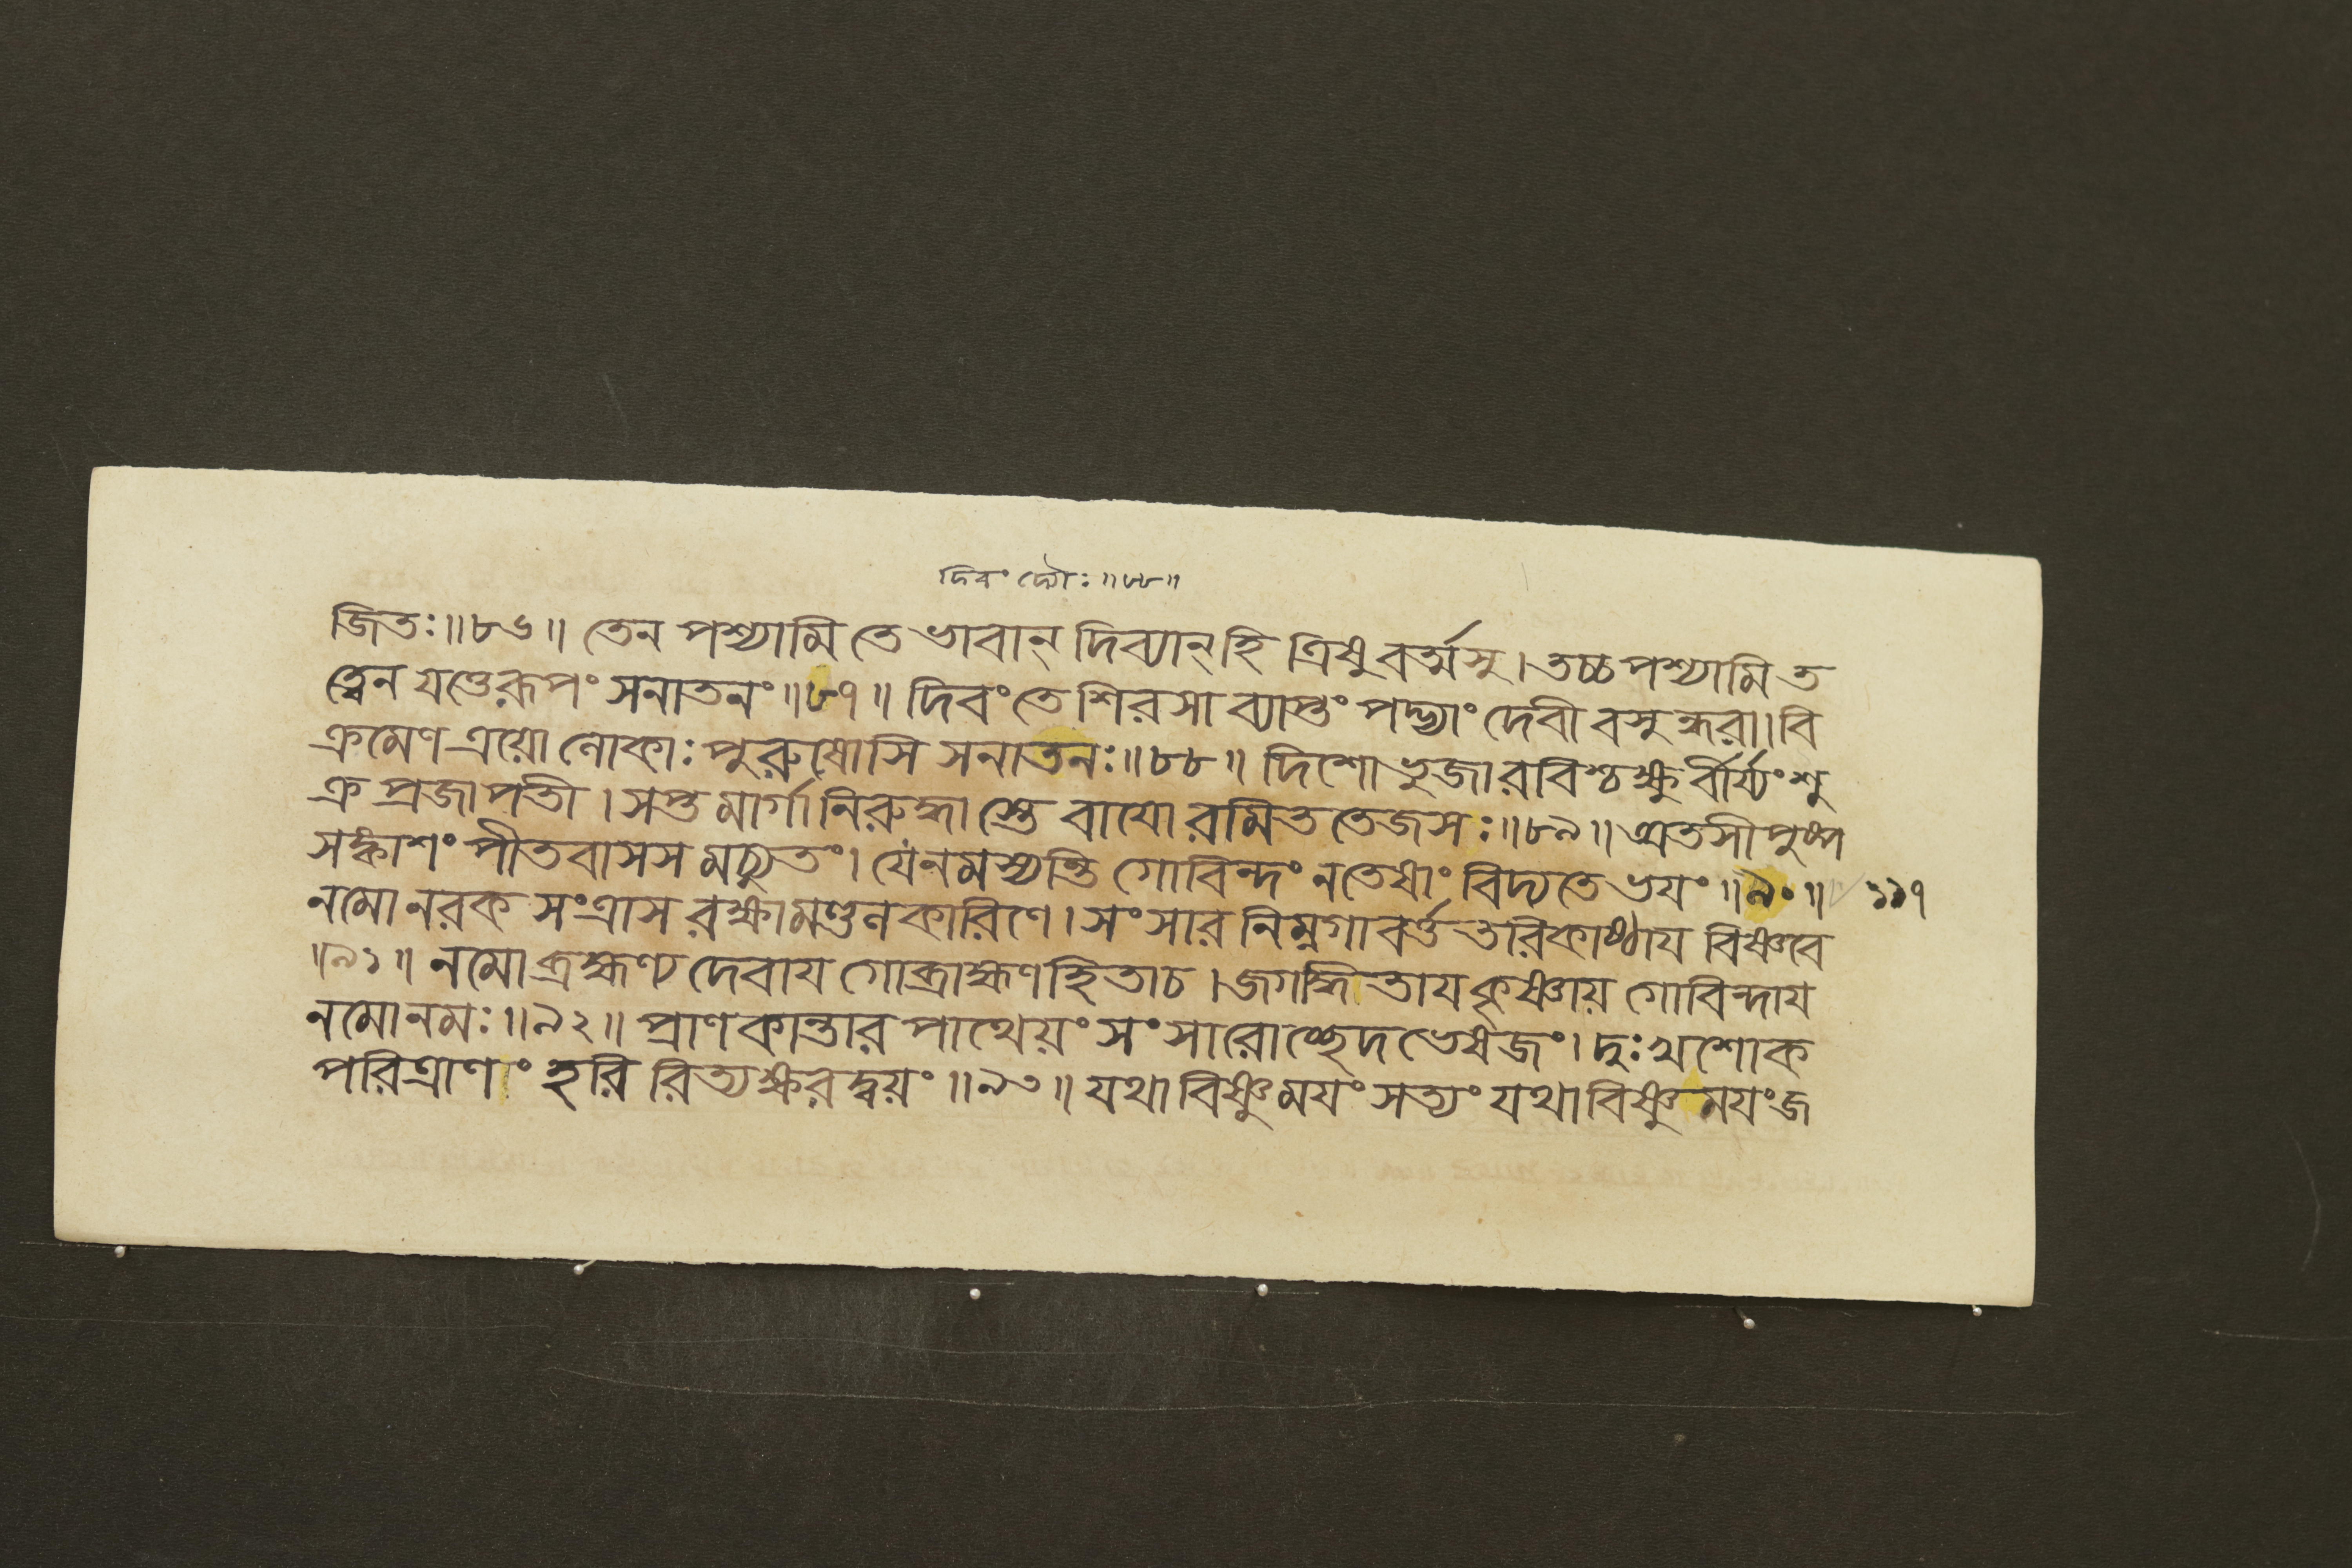 দিবং দ্যৌঃ॥৮৮॥
জিতঃ॥৮৬॥ তেন পশ্যামি তে ভাবান্ দিব্যান্ হি ত্রিষু বর্ত্মসু। তচ্চ পশ্যামি ত
ত্ত্বেন যত্তেরূপং সনাতনং॥৮৭॥ দিবংতে শিরসা ব্যাপ্তং পদ্ভ্যাং দেবী বসুন্ধরা। বি
ক্রমেণ ত্রয়ো লোকাঃ পুরুষোসি সনাতনঃ॥৮৮॥ দিশো ভুজা রবিশ্চক্ষু র্বীর্য্যং শু
ক্র প্রজাপতী। সপ্ত মার্গা নিরুদ্ধা স্তে বাযো রমিত তেজসঃ॥৮৯॥ অতসী পুষ্প
সঙ্কাশং পীতবাসস মচ্যুতং। যেনমস্যন্তি গোবিন্দং নতেষাং বিদ্যতে ভযং॥৯০॥ ১১৭
নমো নরক সংত্রাস রক্ষামণ্ডলকারিণে। সংসার নিম্নগাবর্ত্ত তরিকাষ্ঠায বিষ্ণবে
॥৯১॥ নমো ব্রহ্মণ্য দেবায গোব্রাহ্মণ হিতাচ। জগদ্ধিতায কৃষ্ণায় গোবিন্দায
নমোনমঃ॥৯২॥ প্রাণকান্তার পাথেয়ং সংসারোচ্ছেদ ভেষজং। দুঃখশোক
পরিত্রাণং হরি রিত্যক্ষরদ্বয়ং॥৯৩॥ যথা বিষ্ণুময়ং সত্যং যথা বিষ্ণুময়ং জ